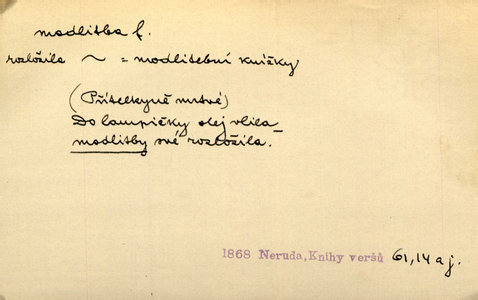 modlitba f.
rozložila ~ = modlitební knížky
(Přítelkyně mrtvé)
Do lampičky olej vlila –
modlitby své rozložila.
1868 Neruda, Knihy veršů 61,14 a j.